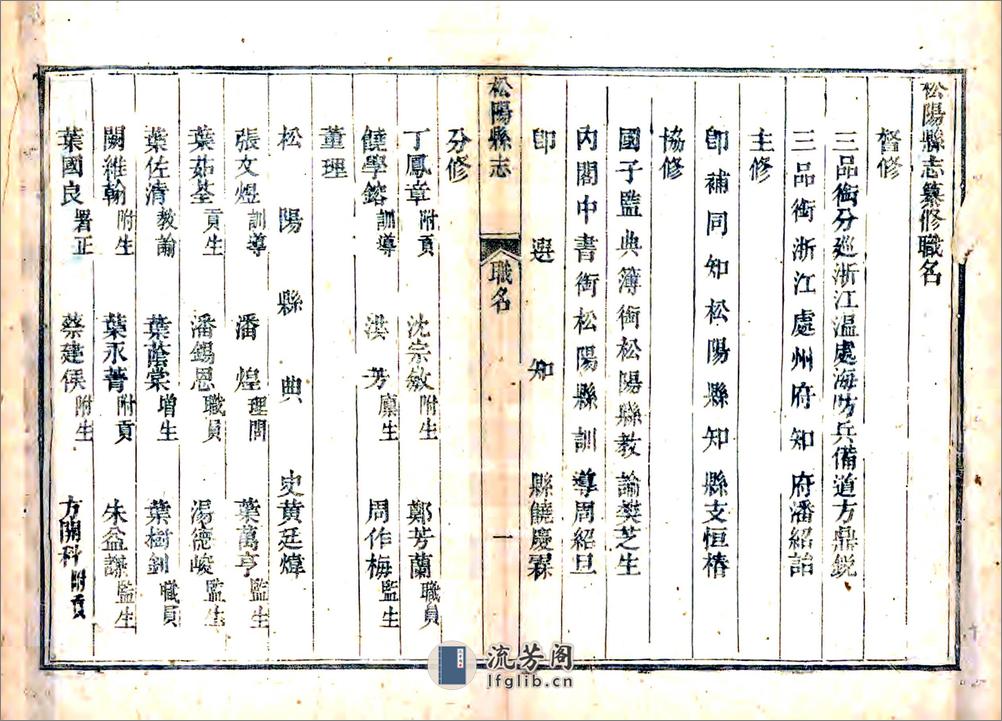 松陽縣志纂修職名
督修
三品銜分廵浙江溫處海防兵備道方鼎銳
三品銜浙江處州府知府潘紹詒
主修
卽補同知松陽縣知縣支恒椿
協修
國子監典簿銜松陽縣敎諭樊芝生
內閣中書銜松陽縣訓導周紹旦
卽選知縣饒慶霖
松陽縣志 職名 一
分修
丁鳳章附貢 沈宗敏附生 鄭芳蘭職員
饒學鎔訓導 洪芳廩生 周作梅監生
董理
松陽縣典史黃廷煒
張文煜訓導 潘煌理問 葉萬亨監生
葉茹荃貢生 潘錫恩職員 湯德峻監生
葉佐清教諭 葉蔭棠增生 葉樹釗職員
闕維翰附生 葉永菁附貢 朱益謙監生
葉國良署正 蔡建侯附生 方開科附貢
流芳阁
lfglib.cn